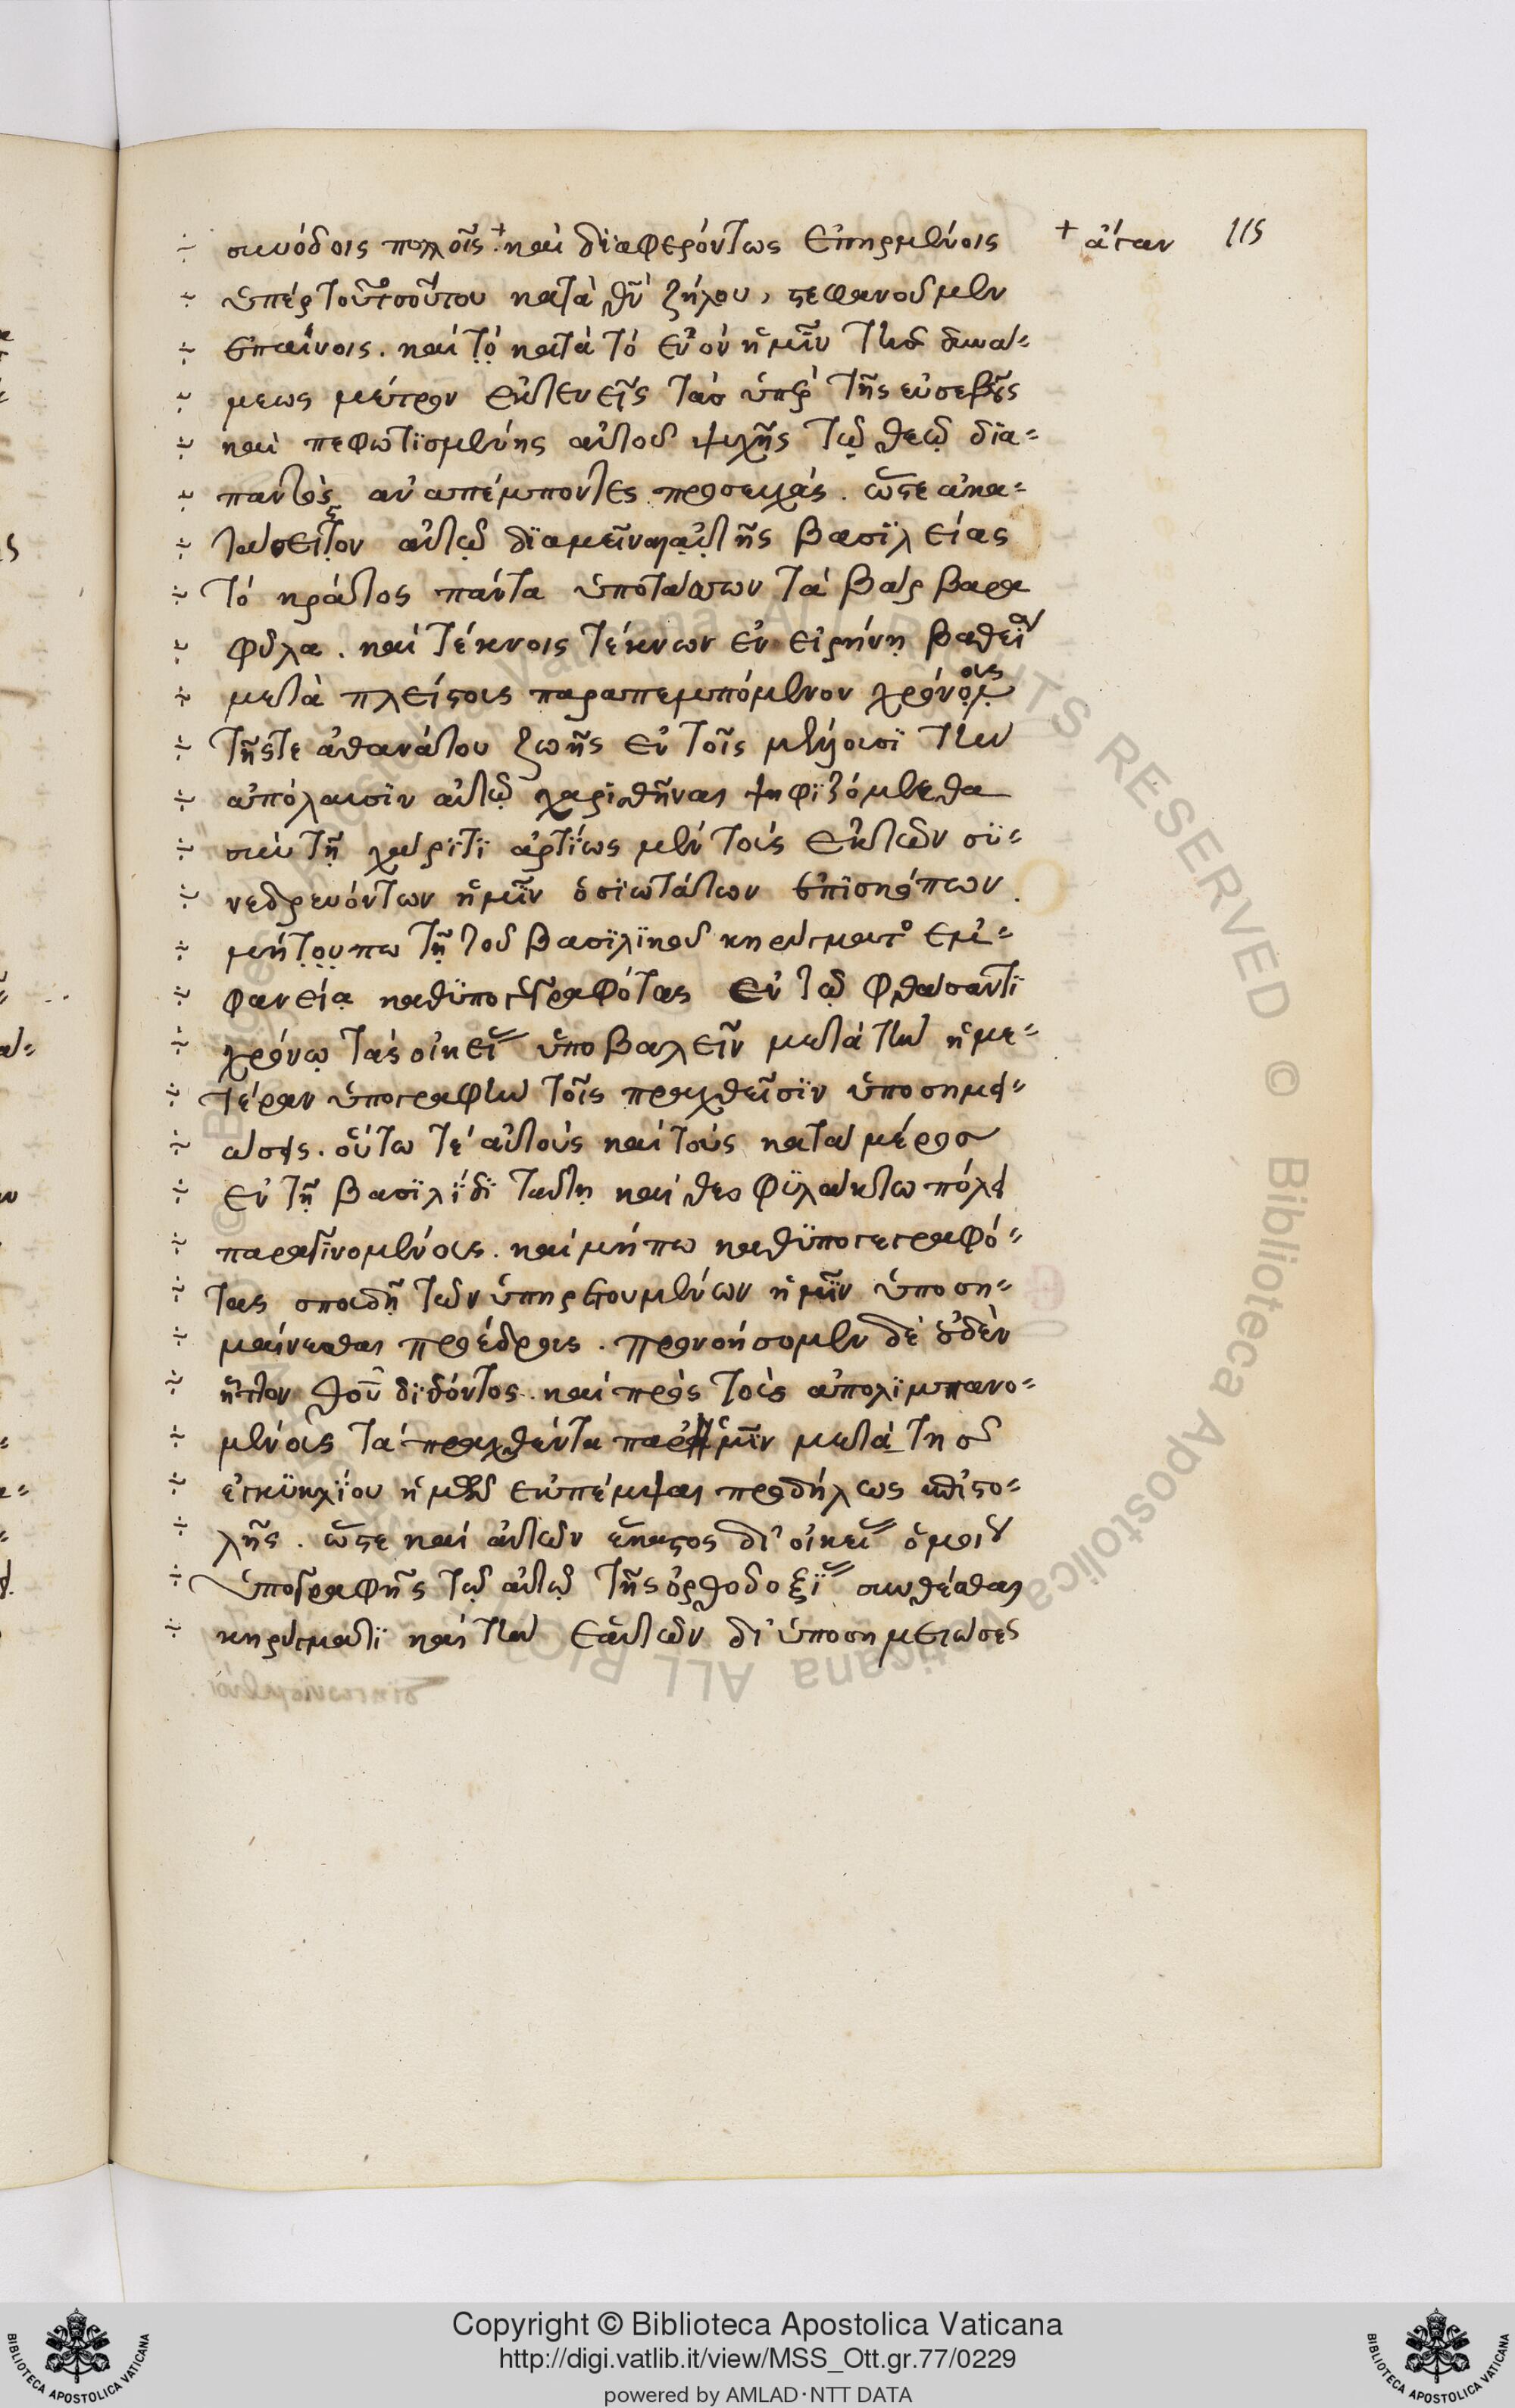 συνόδοις πολλοῖς + καὶ διαφερόντως ἐπηρμένοις + ἄγαν 115
ὑπὲρ τοῦ τοσούτου κατὰ θν̅ ζήλου, στεφανοῦμεν
ἐπαίνοις. καὶ τὸ κατὰ τὸ ἐνὸν ἡμῖν τῆς δυνά=
μεως μέτρον ἐκτενεῖς τὰς ὑπὲρ τῆς εὐσεβοῦς
καὶ πεφωτισμένης αὐτοῦ ψυχῆς τῷ θεῷ δια=
παντὸς ἀναπέμποντες προσευχάς. ὥστε ἀκα=
τάσειστον αὐτῷ διαμεῖναι αὐτῆς βασιλείας
τὸ κράτος πάντα ὑποτάσσων τὰ βάρβαρα
φῦλα. καὶ τέκνοις τέκνων ἐν εἰρήνῃ βαθείᾳ
μετὰ πλείστους παραπεμπόμενον χρόνους
τῆς τε ἀθανάτου ζωῆς ἐν τοῖς μέλλουσι τὴν
ἀπόλαυσιν αὐτῷ χαρισθῆναι ψηφιζόμεθα
σὺν τῇ χάριτι ἀρτίως μὲν τοὺς ἐκ τῶν συ=
νεδρευόντων ἡμῖν ὁσιωτάτων ἐπισκόπων.
μήτουπω τῇ τοῦ βασιλικοῦ κηρύγματος ἐμ=
φανείᾳ καθυπογεγραφότας ἐν τῷ φθάσαντι
χρόνῳ τὰς οἰκείας ὑποβαλεῖν μετὰ τὴν ἡμε=
τέραν ὑπογραφὴν τοῖς πραχθεῖσιν ὑποσημει=
ώσεις. οὕτω τε αὐτοὺς καὶ τοὺς κατὰ μέρος
ἐν τῇ βασιλίδι ταύτῃ καὶ θεοφυλάκτω πόλει
παραγινομένους. καὶ μήπω καθυπογεγραφό=
τας σπουδῇ τῶν ὑπηρετουμένων ἡμῖν ὑποση=
μαίνεσθαι προέδρους. προνοήσομεν δὲ οὐδὲν
ἧττον θου̅ διδόντος. καὶ πρὸς τοὺς ἀπολιμπανο=
μένους τὰ πραχθέντα παρ' ἡμῖν μετὰ τῆς
ἐγκυκλίου ἡμῶν ἐκπέμψαι προδήλως ἐπιστο=
λῆς. ὥστε καὶ αὐτῶν ἕκαστος δι' οἰκείας ὁμοίου
ὑπογραφῆς τῷ αὐτῷ τῆς ὀρθοδοξίας συνθέσθαι
κηρύγματι καὶ τὴν ἑαυτῶν δι' ὑποσημειώσεως